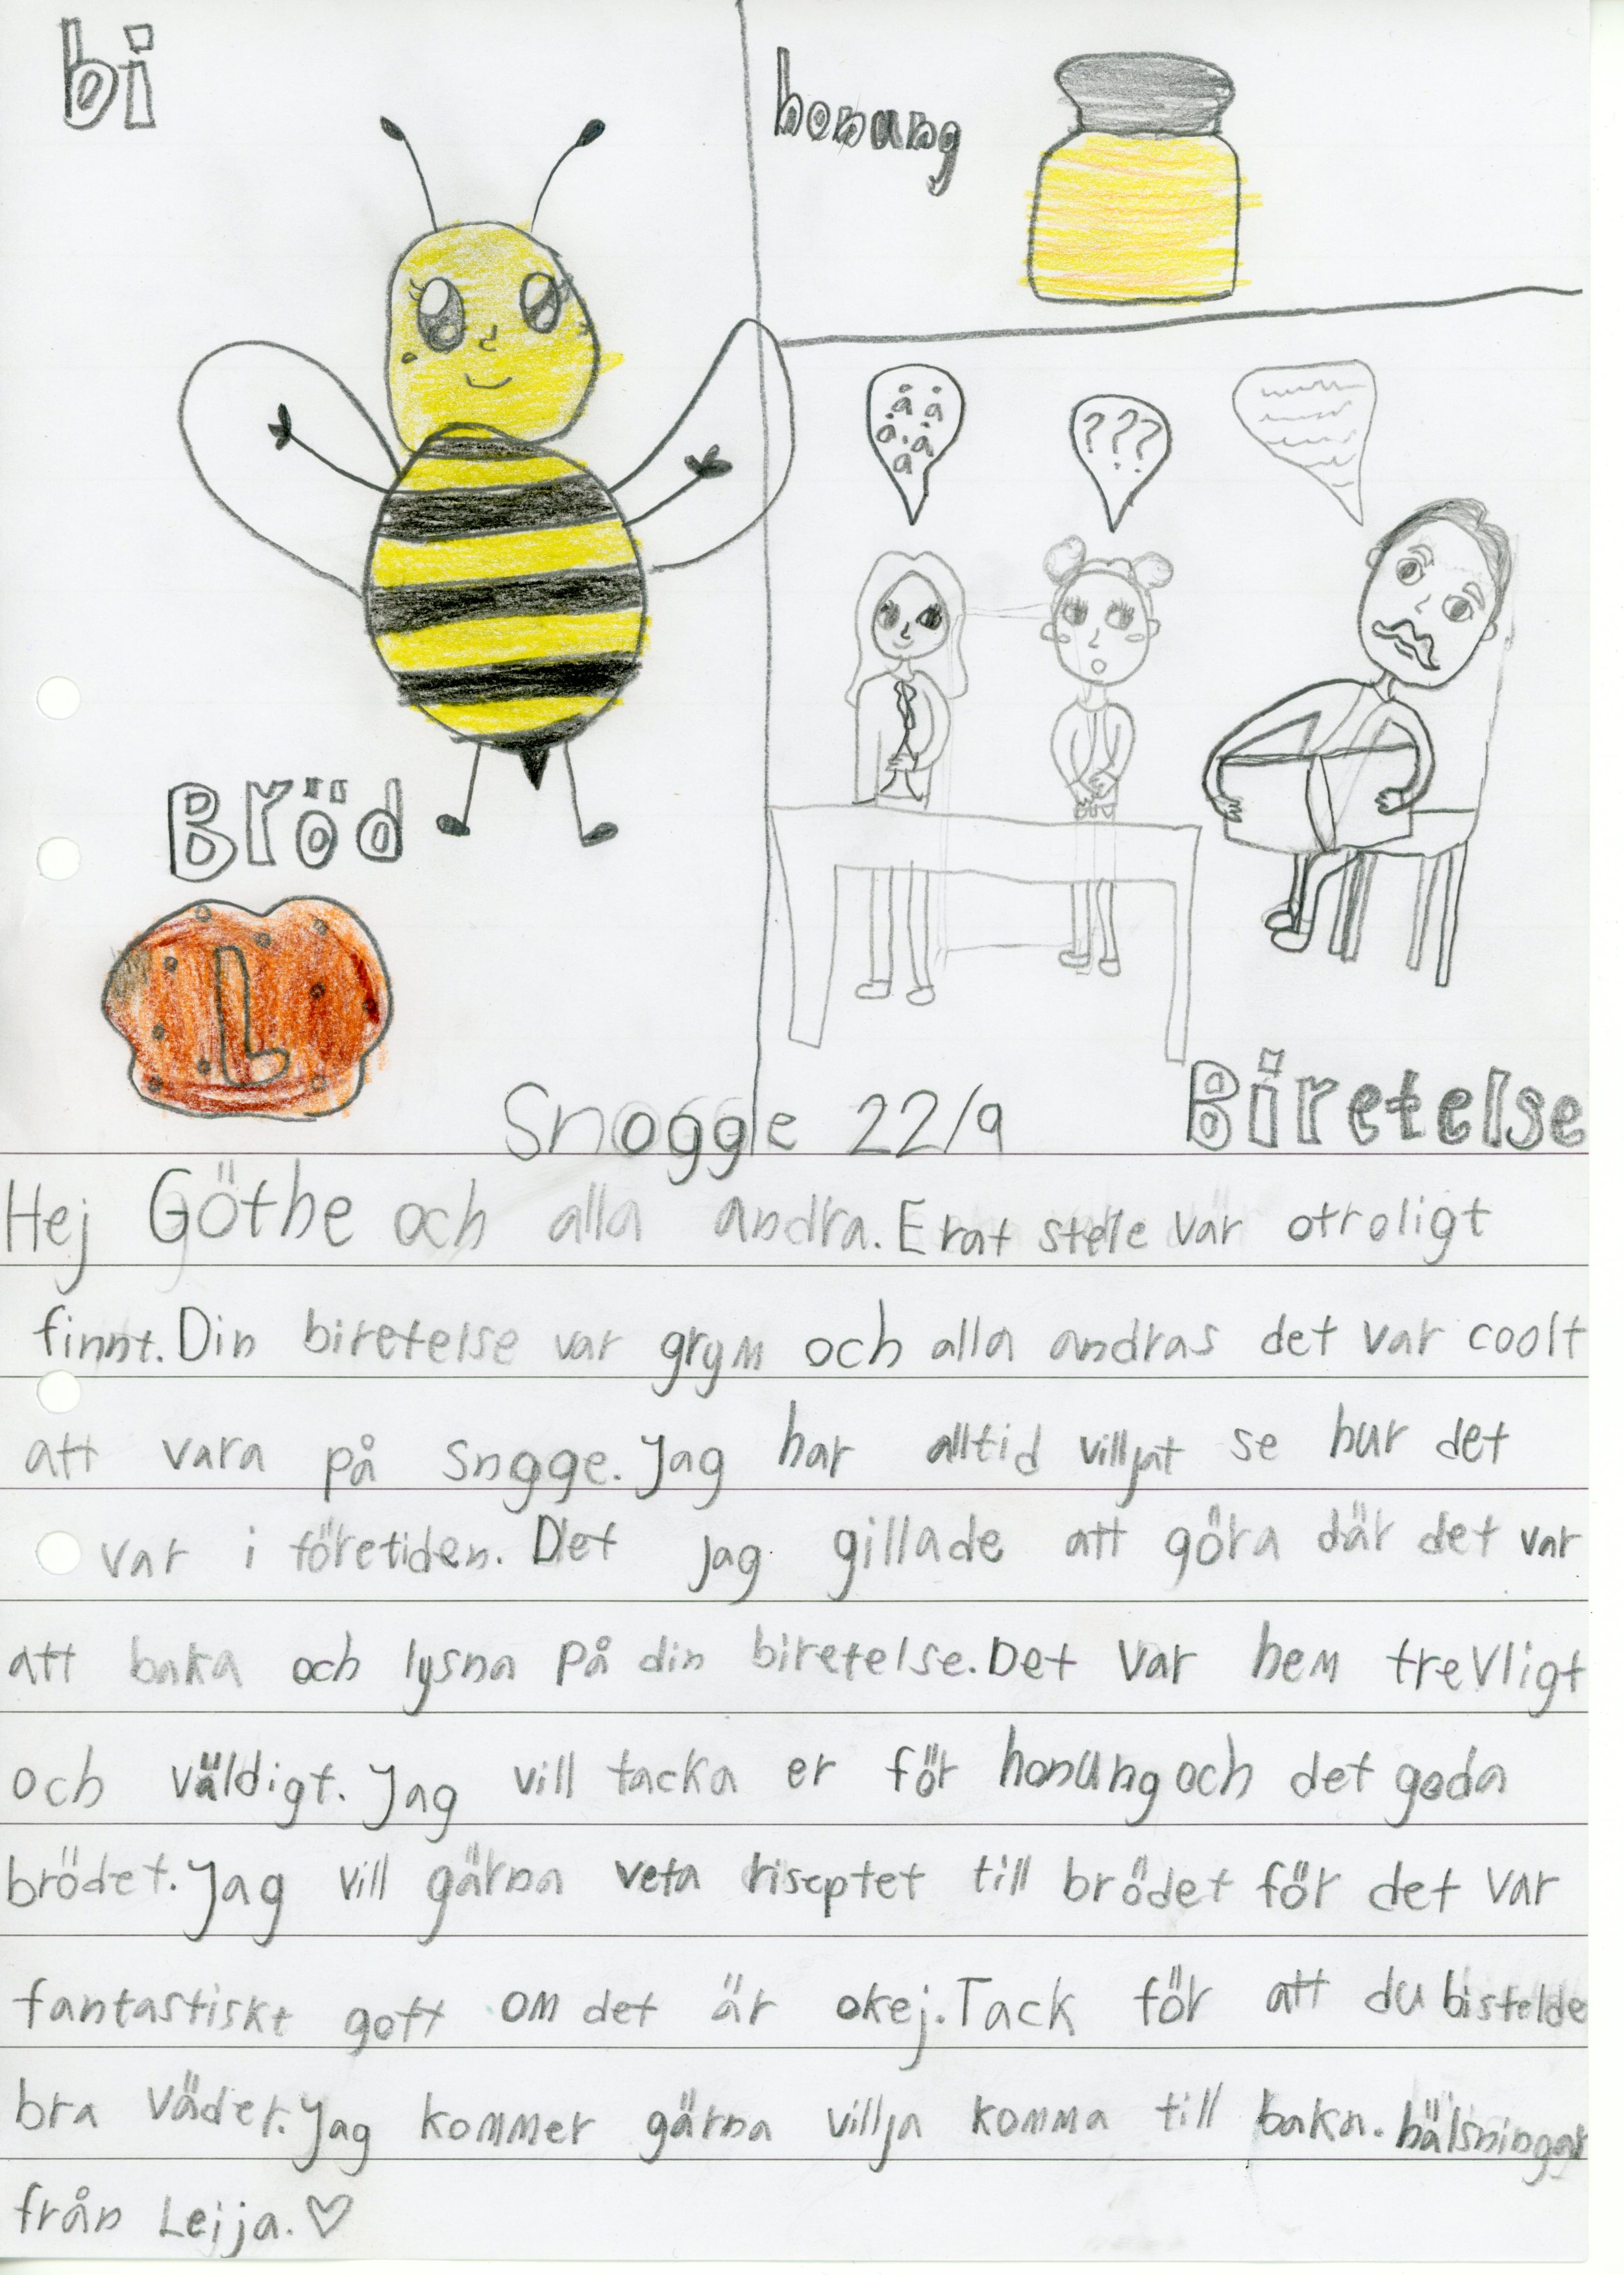 bi
honung
å å
å å
å
???
Bröd
L
Biretelse
Snogge 22/9
Hej Göthe och alla andra. Erat stelle var otroligt
finnt. Din biretelse var grym och alla andras det var coolt
att vara på Sngge. Jag har alltid villjat se hur det
var i företiden. Det jag gillade att göra där det var
att baka och lysna på din biretelse. Det var hem trevligt
och väldigt. Jag vill tacka er för honung och det goda
brödet. Jag vill gärna veta riseptet till brödet för det var
fantastiskt gott om det är okej. Tack för att du bistelde
bra väder. Jag kommer gärna villja komma till baka. hälsningar
från Leija. ♡